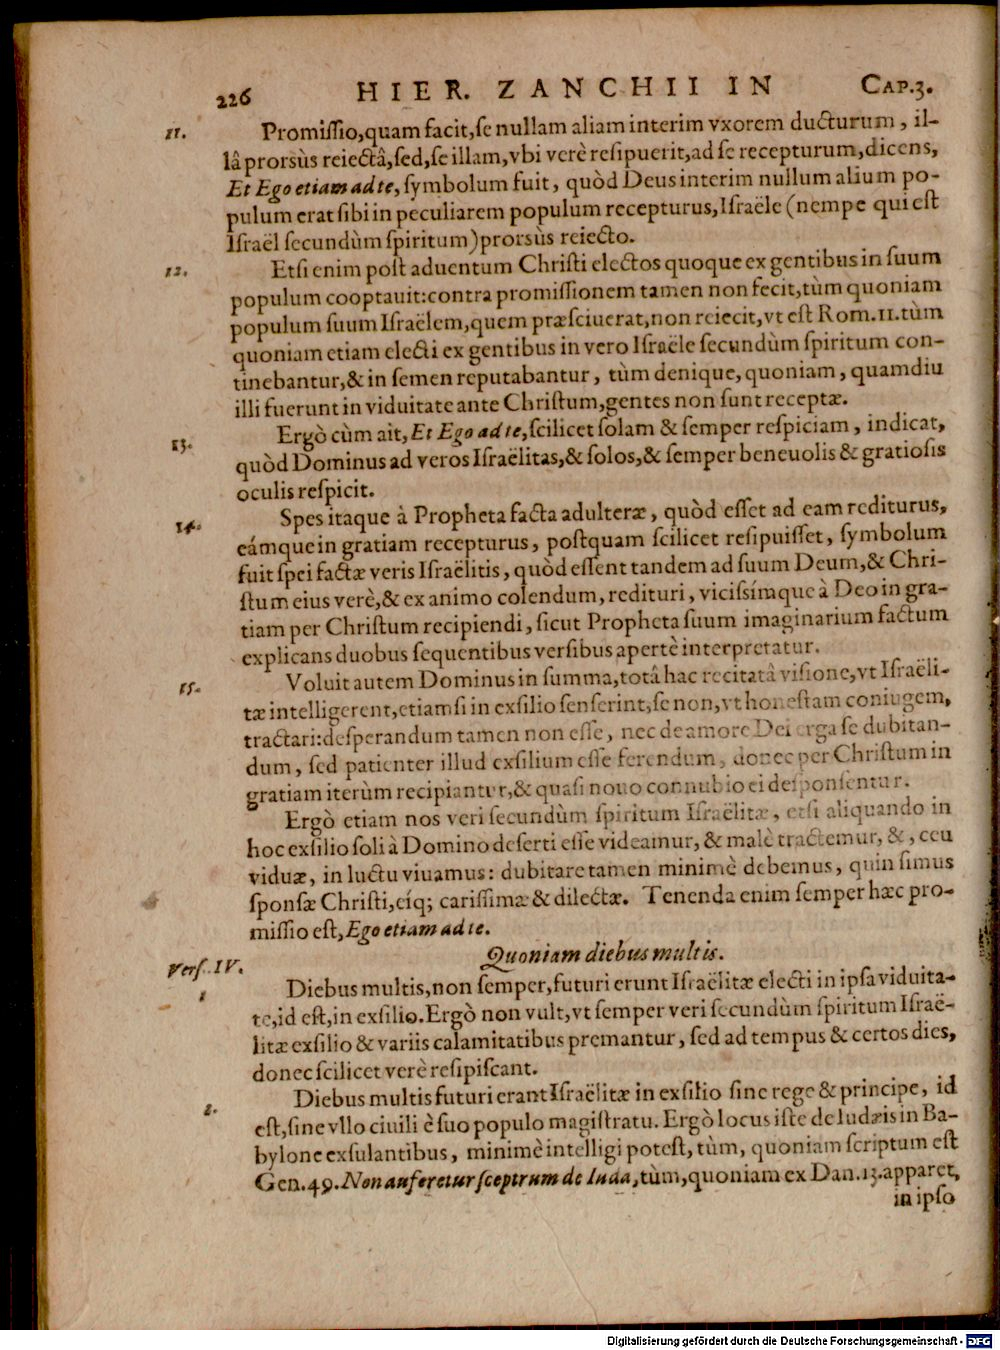 226 HIER. ZANCHII IN CAP.3.
11. Promissio, quam facit, se nullam aliam interim vxorem ducturum, il-
lâ prorsùs reiectâ, sed, se illam, vbi verè resipuerit, ad se recepturum, dicens,
Et Ego etiam ad te, symbolum fuit, quòd Deus interim nullum alium po-
pulum erat sibi in peculiarem populum recepturus, Israële (nempe qui est
Israël secundùm spiritum) prorsùs reiecto.
12. Etsi enim post aduentum Christi electos quoque ex gentibus in suum
populum cooptauit: contra promissionem tamen non fecit, tùm quoniam
populum suum Israëlem, quem præsciuerat, non reiecit, vt est Rom.11. tùm
quoniam etiam electi ex gentibus in vero Israële secundùm spiritum con-
tinebantur, & in semen reputabantur, tùm denique, quoniam, quamdiu
illi fuerunt in viduitate ante Christum, gentes non sunt receptæ.
13. Ergò cùm ait, Et Ego ad te, scilicet solam & semper respiciam, indicat,
quòd Dominus ad veros Israëlitas, & solos, & semper beneuolis & gratiosis
oculis respicit.
14. Spes itaque à Propheta facta adulteræ, quòd esset ad eam rediturus,
eámque in gratiam recepturus, postquam scilicet resipuisset, symbolum
fuit spei factæ veris Israëlitis, quòd essent tandem ad suum Deum, & Chri-
stum eius verè, & ex animo colendum, redituri, vicissímque à Deo in gra-
tiam per Christum recipiendi, sicut Propheta suum imaginarium factum
explicans duobus sequentibus versibus apertè interpretatur.
15. Voluit autem Dominus in summa, totâ hac recitatâ visione, vt Israëli-
tæ intelligerent, etiamsi in exsilio senserint, se non, vt honestam coniugem,
tractari: desperandum tamen non esse, nec de amore Dei erga se dubitan-
dum, sed patienter illud exsilium esse ferendum, donec per Christum in
gratiam iterùm recipiantur, & quasi nouo connubio ei desponsentur.
Ergò etiam nos veri secundùm spiritum Israëlitæ, etsi aliquando in
hoc exsilio soli à Domino deserti esse videamur, & malè tractemur, &, ceu
viduæ, in luctu viuamus: dubitare tamen minimè debemus, quin simus
sponsæ Christi, eíq; carissimæ & dilectæ. Tenenda enim semper hæc pro-
missio est, Ego etiam ad te.
Quoniam diebus multis.
Vers. IV.
1 Diebus multis, non semper, futuri erunt Israëlitæ electi in ipsa viduita-
te, id est, in exsilio. Ergò non vult, vt semper veri secundùm spiritum Israë-
litæ exsilio & variis calamitatibus premantur, sed ad tempus & certos dies,
donec scilicet verè resipiscant.
2. Diebus multis futuri erant Israëlitæ in exsilio sine rege & principe, id
est, sine vllo ciuili è suo populo magistratu. Ergò locus iste de Iudæis in Ba-
bylone exsulantibus, minimè intelligi potest, tùm, quoniam scriptum est
Gen.49. Non auferetur sceptrum de Iuda, tùm, quoniam ex Dan.13. apparet,
in ipso
Digitalisierung gefördert durch die Deutsche Forschungsgemeinschaft - DFG